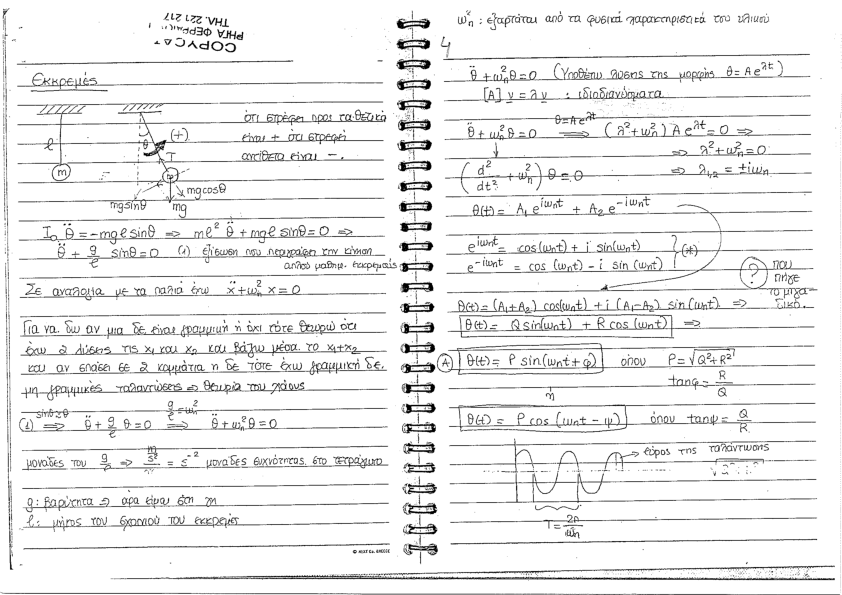 COPYCAT
ΡΗΓΑ ΦΕΡΡΑΙΟΥ
ΤΗΛ. 221 217
Εκκρεμές
ότι στρέφει προς τα θετικά
είναι + ότι στρέφει
αντίθετα είναι −.
ℓ
m
θ
(+)
T
m
mg sinθ
mg
mg cosθ
I₀ θ̈ = −mgℓ sinθ ⇒ mℓ² θ̈ + mgℓ sinθ = 0 ⇒
θ̈ + g/ℓ sinθ = 0 (1) εξίσωση που περιγράφει την κίνηση
απλού μαθημ. εκκρεμούς
Σε αναλογία με τα παλιά έχω ẍ + ωn² x = 0
Για να δω αν μια δε είναι γραμμική ή όχι τότε θεωρώ ότι
έχω 2 λύσεις της x₁ και x₂ και βάζω μέσα το x₁+x₂
και αν σπάσει σε 2 κομμάτια η δε τότε έχω γραμμική δε.
μη γραμμικές ταλαντώσεις ⇒ θεωρία του χάους
(1) sinθ≈θ ⇒ θ̈ + g/ℓ θ = 0 g/ℓ = ωn² ⇒ θ̈ + ωn² θ = 0
μονάδες του g/ℓ ⇒ m/s² / m = s⁻² μονάδες συχνότητας στο τετράγωνο
g: βαρύτητα ⇒ άρα είμαι στη γη
ℓ: μήκος του σχοινιού του εκκρεμές
© NEXT Co. GREECE
ωn² : εξαρτάται από τα φυσικά χαρακτηριστικά του υλικού
4
θ̈ + ωn² θ = 0 (Υποθέτω λύσεις της μορφής θ = Ae^λt)
[A] v = λ v : ιδιοδιανύσματα
θ̈ + ωn² θ = 0 θ=Ae^λt ⇒ (λ² + ωn²) A e^λt = 0 ⇒
⇒ λ² + ωn² = 0
(d²/dt² + ωn²) θ = 0 ⇒ λ₁,₂ = ±iωn
θ(t) = A₁ e^iωnt + A₂ e^−iωnt
e^iωnt = cos(ωnt) + i sin(ωnt)
e^−iωnt = cos(ωnt) − i sin(ωnt) } (*)
? που πήγε το μιγαδικό.
θ(t) = (A₁+A₂) cos(ωnt) + i (A₁−A₂) sin(ωnt) ⇒
θ(t) = Q sin(ωnt) + R cos(ωnt) ⇒
(A) θ(t) = P sin(ωnt + φ) όπου P = √Q²+R²
tanφ = R/Q
ή
θ(t) = P cos(ωnt − ψ) όπου tanψ = Q/R
εύρος της ταλάντωσης
T = 2π/ωn